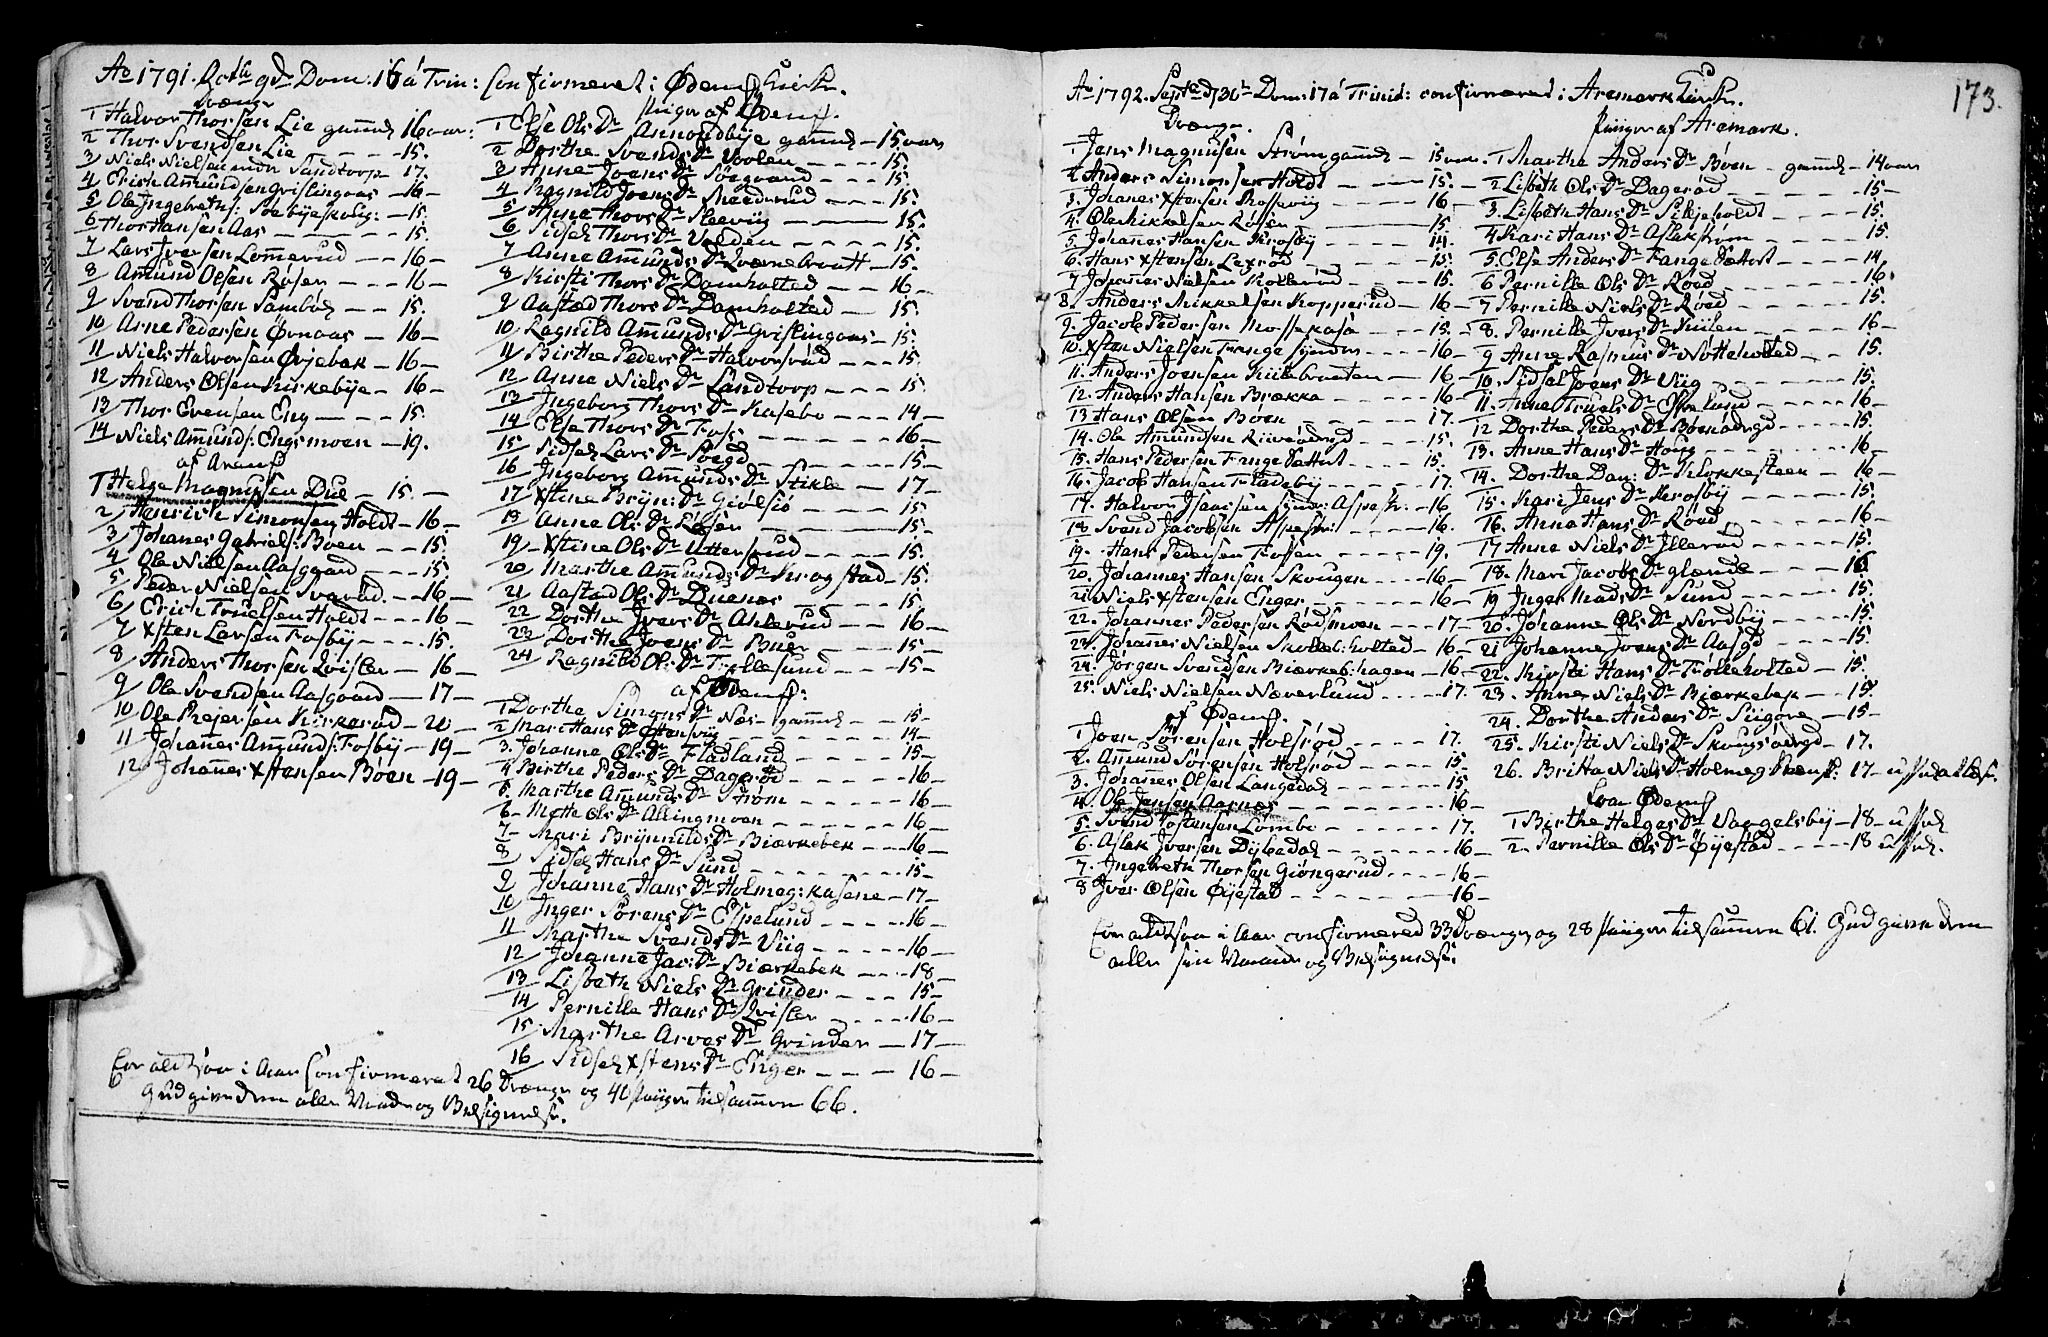 Ao 1791. Octbr 9de Dom: 16 á Trin: confirmeret i Ødem: Kirke.
Drænge
1 Halvor Thorsen Lie gammel 16 aar:
2 Thor Svendsen Lie - - - 15.
3 Niels Nielsen Sandtorp 17.
4 Erich Amundsen Grislingaas - 16 -
5 Ole Ingebreths: - 15.
6 Thor Hansen Aas - - 15.
7 Lars Iversen Lommerud - - 16 -
8 Amund Olsen Røsen - - 16 -
9 Svend Thorsen Sambøl - - 15.
10 Arne Pedersen Ørnaas - 16 -
11 Niels Halvorsen Øvjebek - 16 -
12 Anders Olsen Kirkebye - 16 -
13 Thor Evensen Eng - - 15.
14 Niels Amunds: Engsmoen - 19.
af Arem:
1 Helge Magnusen Due - 15. -
2 Henrich Simonsen Holdt - 16 -
3 Johanes Gabriels: Bøen - - 15.
4 Ole Nielsen Aasgaard - - 15.
5 Peder Nielsen Svarud - - 16 -
6 Erich Truelsen Holdt - - 16 -
7 Xsten Larsen Fosbÿ - - - 15.
8 Anders Thorsen Qvisler - 16 -
9 Ole Svendsen Aasgaard - 17 -
10 Ole Rejersen Kirkerød - 20 -
11 Johanes Amunds: Fosbÿ - 19 -
12 Johanes Xstensen Bøen - 19 -
Piiger af Ødem:
1 Else Ols Dr Annondbÿe gammel - 15 aar
2 Dorthe Svends Dr Voolen - - 15.
3 Anne Joens Dr Søegaard - - 15.
4 Ragnild Joens Dr - - 15.
5 Anne Thors Dr Kleeviig - - 15.
6 Sidsel Thors Dr Volden - - 15.
7 Anne Amunds Dr Qværnebraatt - 15.
8 Kirsti Thors Dr Damholted - - 16 -
9 Aastad Thors Dr Damholted - - 15.
10 Ragnild Amunds Dr Grislingaas - 15.
11 Birthe Peders Dr Halvorsrød - - 15.
12 Anne Niels Dr Sandtorp - - 15.
13 Ingeborg Thors Dr Kasebo - - 14 -
14 Else Thors Dr Foss - - 16 -
15 Sidsel Lars Dr Søegd - - 15 -
16 Ingeborg Amunds Dr Stikle - 17 -
17 Xstine Brÿn: Dr Giølsiø - - 15.
18 Anne Ols Dr Røsen - - 15 -
19 Xstine Ols Dr Ulterud - - 15.
20 Marthe Amunds Dr Krogstad - 15.
21 Aastad Ols Dr Buenæs - - 15 -
22 Dorthe Ivers Dr Ahlerud - - 16 -
23 Dorthe Joens Dr Buer - - 15.
24 Ragnild Ols Dr Trollesund - - 15 -
af
1 Dorthe Simons Dr Næs - gammel - - 15 -
2 Mari Hans Dr Østensviig - - 14 -
3. Johanne Ols Dr Fladland - - 15 -
4 Birthe Peders Dr Dagerød - - 16 -
5. Marthe Amunds Dr Strøm - - 16 -
6 - Mette Ols Dr Allingmoen - - 16 -
7 - Mari Brÿnnilds Dr Biærkebek - - 16 -
8 Sidsel Hans Dr Sund - - 15 -
9 Johanne Hans Dr Holmeg: Kasene - 17 -
10 Inger Sørens Dr Espelund - - 16 -
11 Marthe Svends Dr Viig - - 16 -
12 Johanne Jac: Dr Biærkebek - - 18 -
13 Lisbeth Niels Dr Grinder - - 15 -
14 Pernille Hans Dr Qvisler - - 16 -
15 Marthe Arves Dr Grinder - 17 -
16 Sidsel Xstens Dr Enger - - 16 -
Er altsaa i Aar confirmeret 26 Drænge og 40 Piiger tilsammen 66.
Gud give dem alle Naade og Velsignelse.
173.
Ao 1792. Septbr d 30te Dom: 17 á Trinit: confirmeret i Aremark Kirke.
Drænge.
1 Jens Magnusen Strøm gammel - 15 aar.
2 Anders Simonsen Holdt - - 15. -
3. Johanes Xstensen Skosseviig - - 16 -
4. Ole Mikkelsen Røsen - - 15.
5 Johanes Hansen Krosbÿ - - 14.
6. Hans Xstensen Lexrød - - 15.
7 Johannes Nielsen Kollerød - - 15.
8. Anders Mikkelsen Kopperud - - 16 -
9. Jacob Pedersen Mossekasa - - 15. -
10. Xsten Nielsen Fange - - 16 -
11. Anders Joensen Kiilebraaten - - 16 -
12. Anders Hansen Brække - - 16 -
13 Hans Olsen Bøen - - 17.
14. Ole Amundsen - - 15.
15. Hans Pedersen Fange - - 15.
16. Jacob Hansen Fladebÿ - - 17.
17. Halvor Isaacsen - 16 -
18 Svend Jacobsen - - 16.
19. Hans Pedersen Fossen - - 19.
20. Johannes Hansen Skougen - - 16 -
21 Niels Xstensen Enger - - 16 -
22. Johannes Pedersen Rødsmoen - - 17 -
23. Johannes Nielsen Skolleb:holted - 16 -
24. Jørgen Svendsen Biærkeb:hagen - 16 -
25. Niels Nielsen Næverlund - - 17.
af Ødem:
1 Joen Sørensen Holsrød - - 17.
2. Amund Sørensen Holsrød - - 15.
3. Johanes Olsen Langedal - - 15
4. Ole Jensen Aarnæs - - 16 -
5. Svend Johansen Lombo - - 17.
6. Aslak Iversen Dÿbedal - - 16 -
7. Ingebreth Thorsen Giøngerud - - 16 -
8 Iver Olsen Øÿestad - - 16 -
Piiger af Aremark.
1 Marthe Anders Dr Bøen - gammel - 14 aar
2 Lisbeth Ols Dr Dagerød - - 15 -
3. Lisbeth Hans Dr - - 15.
4 Kari Hans Dr Aslakstrøm - - 15.
5. Else Anders Dr Fange - - 14.
6 Pernille Ols Dr Røed - - 16.
7 Pernille Niels Dr Røed - - 15.
8. Pernille Ivers Dr Kiilen - - 16 -
9 Anne Rasmus Dr Nøtteholted - - 15.
10. Sidsel Joens Dr Viig - - 15.
11. Anne Truels Dr Espelund - - 16 -
12 Dorthe Peders Dr Bøen - - 15.
13. Anne Hans Dr Houg - - 16 -
14. Dorthe Dan: Dr Klokkesteen - 16 -
15. Kari Jens Dr Krosbÿ - - 15.
16. Anna Hans Dr Røed - - 16 -
17 Anne Niels Dr Illerød - - 15.
18. Mari Jacobs Dr Glænde - - 16
19 Inger Mads Dr Sund - - 15.
20. Johanne Ols Dr Nordbÿ - - 15.
21 Johanne Ivers Dr Aasgd - - 15.
22. Kirsti Hans Dr Trolleholted - 15.
23. Anne Niels Dr Biærkebek - - 15.
24. Dorthe Anders Dr - 15 -
25. Kirsti Niels Dr - 17.
26. Britta Niels Dr Holmeg - 17 -
fra Ødem:
1 Birthe Helges Dr Vaagelsbÿ - 18 -
2. Pernille Ols Dr Øÿestad - - 18
Er altsaa i Aar confirmered 33 Drænge og 28 Piiger tilsammen 61. Gud give dem
alle sin Naade og Velsignelse.